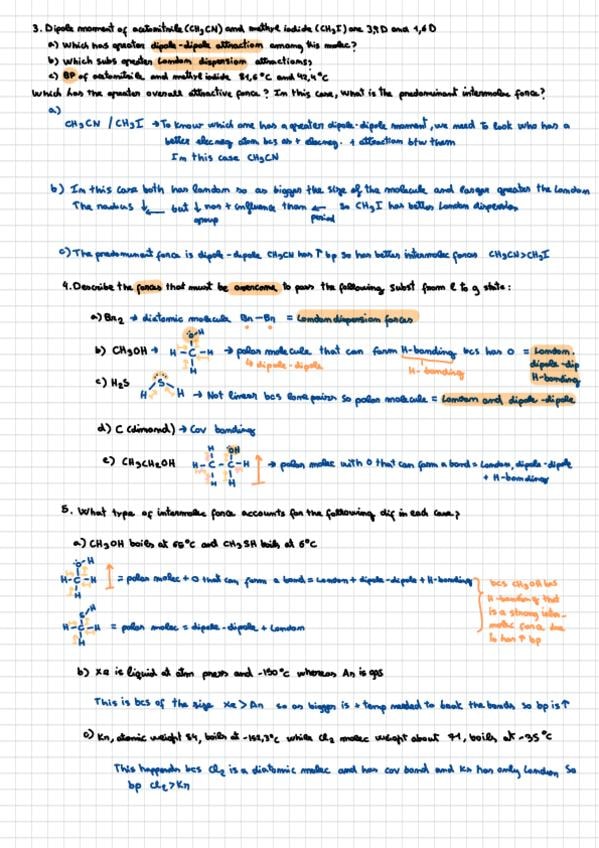 3. Dipole moment of acetonitrile (CH3CN) and methyl iodide (CH3I) are 3,9 D and 1,6 D
a) Which has greater dipole-dipole attraction among this molec?
b) Which subs greater London dispersion attractions?
c) BP of acetonitrile and methyl iodide 81,6°C and 42,4°C
Which has the greater overall attractive force? In this case, what is the predominant intermolec force?
a)
CH3CN / CH3I → To know which one has a greater dipole-dipole moment, we need to look who has a
better elecneg atom bcs as + elecneg. + attraction btw them
In this case CH3CN
b) In this case both has London so as bigger the size of the molecule and larger greater the London
The radius ↓ but ↓ non + influence than ← so CH3I has better London dispersion
group period
c) The predominant force is dipole-dipole CH3CN has ↑ bp so has better intermolec forces CH3CN>CH3I
4. Describe the forces that must be overcome to pass the following subst from l to g state:
a) Br2 → diatomic molecule Br-Br = London dispersion forces
b) CH3OH → H-C-H → polar molecule that can form H-bonding bcs has O = London.
↳ dipole-dipole H-bonding dipole-dip
H-bonding
c) H2S
H S H → Not linear bcs lone pairs so polar molecule = London and dipole-dipole
d) C (dimond) → Cov bonding
e) CH3CH2OH H-C-C-H → polar molec with O that can form a bond = London, dipole-dipole
+ H-bonding
5. What type of intermolec force accounts for the following dif in each case?
a) CH3OH boils at 65°C and CH3SH boils at 6°C
H-C-H = polar molec + O that can form a bond = London + dipole-dipole + H-bonding
bcs CH3OH has
H-bonding that
is a strong inter-
molec force due
to has ↑ bp
H-C-H = polar molec = dipole-dipole + London
b) Xe is liquid at atm press and -190°C whereas Ar is gas
This is bcs of the size Xe > Ar so as bigger is + temp needed to break the bonds so bp is ↑
c) Kr, atomic weight 84, boils at -152,3°C while Cl2 molec weight about 71, boils at -35°C
This happends bcs Cl2 is a diatomic molec and has cov bond and Kr has only London So
bp Cl2 > Kr